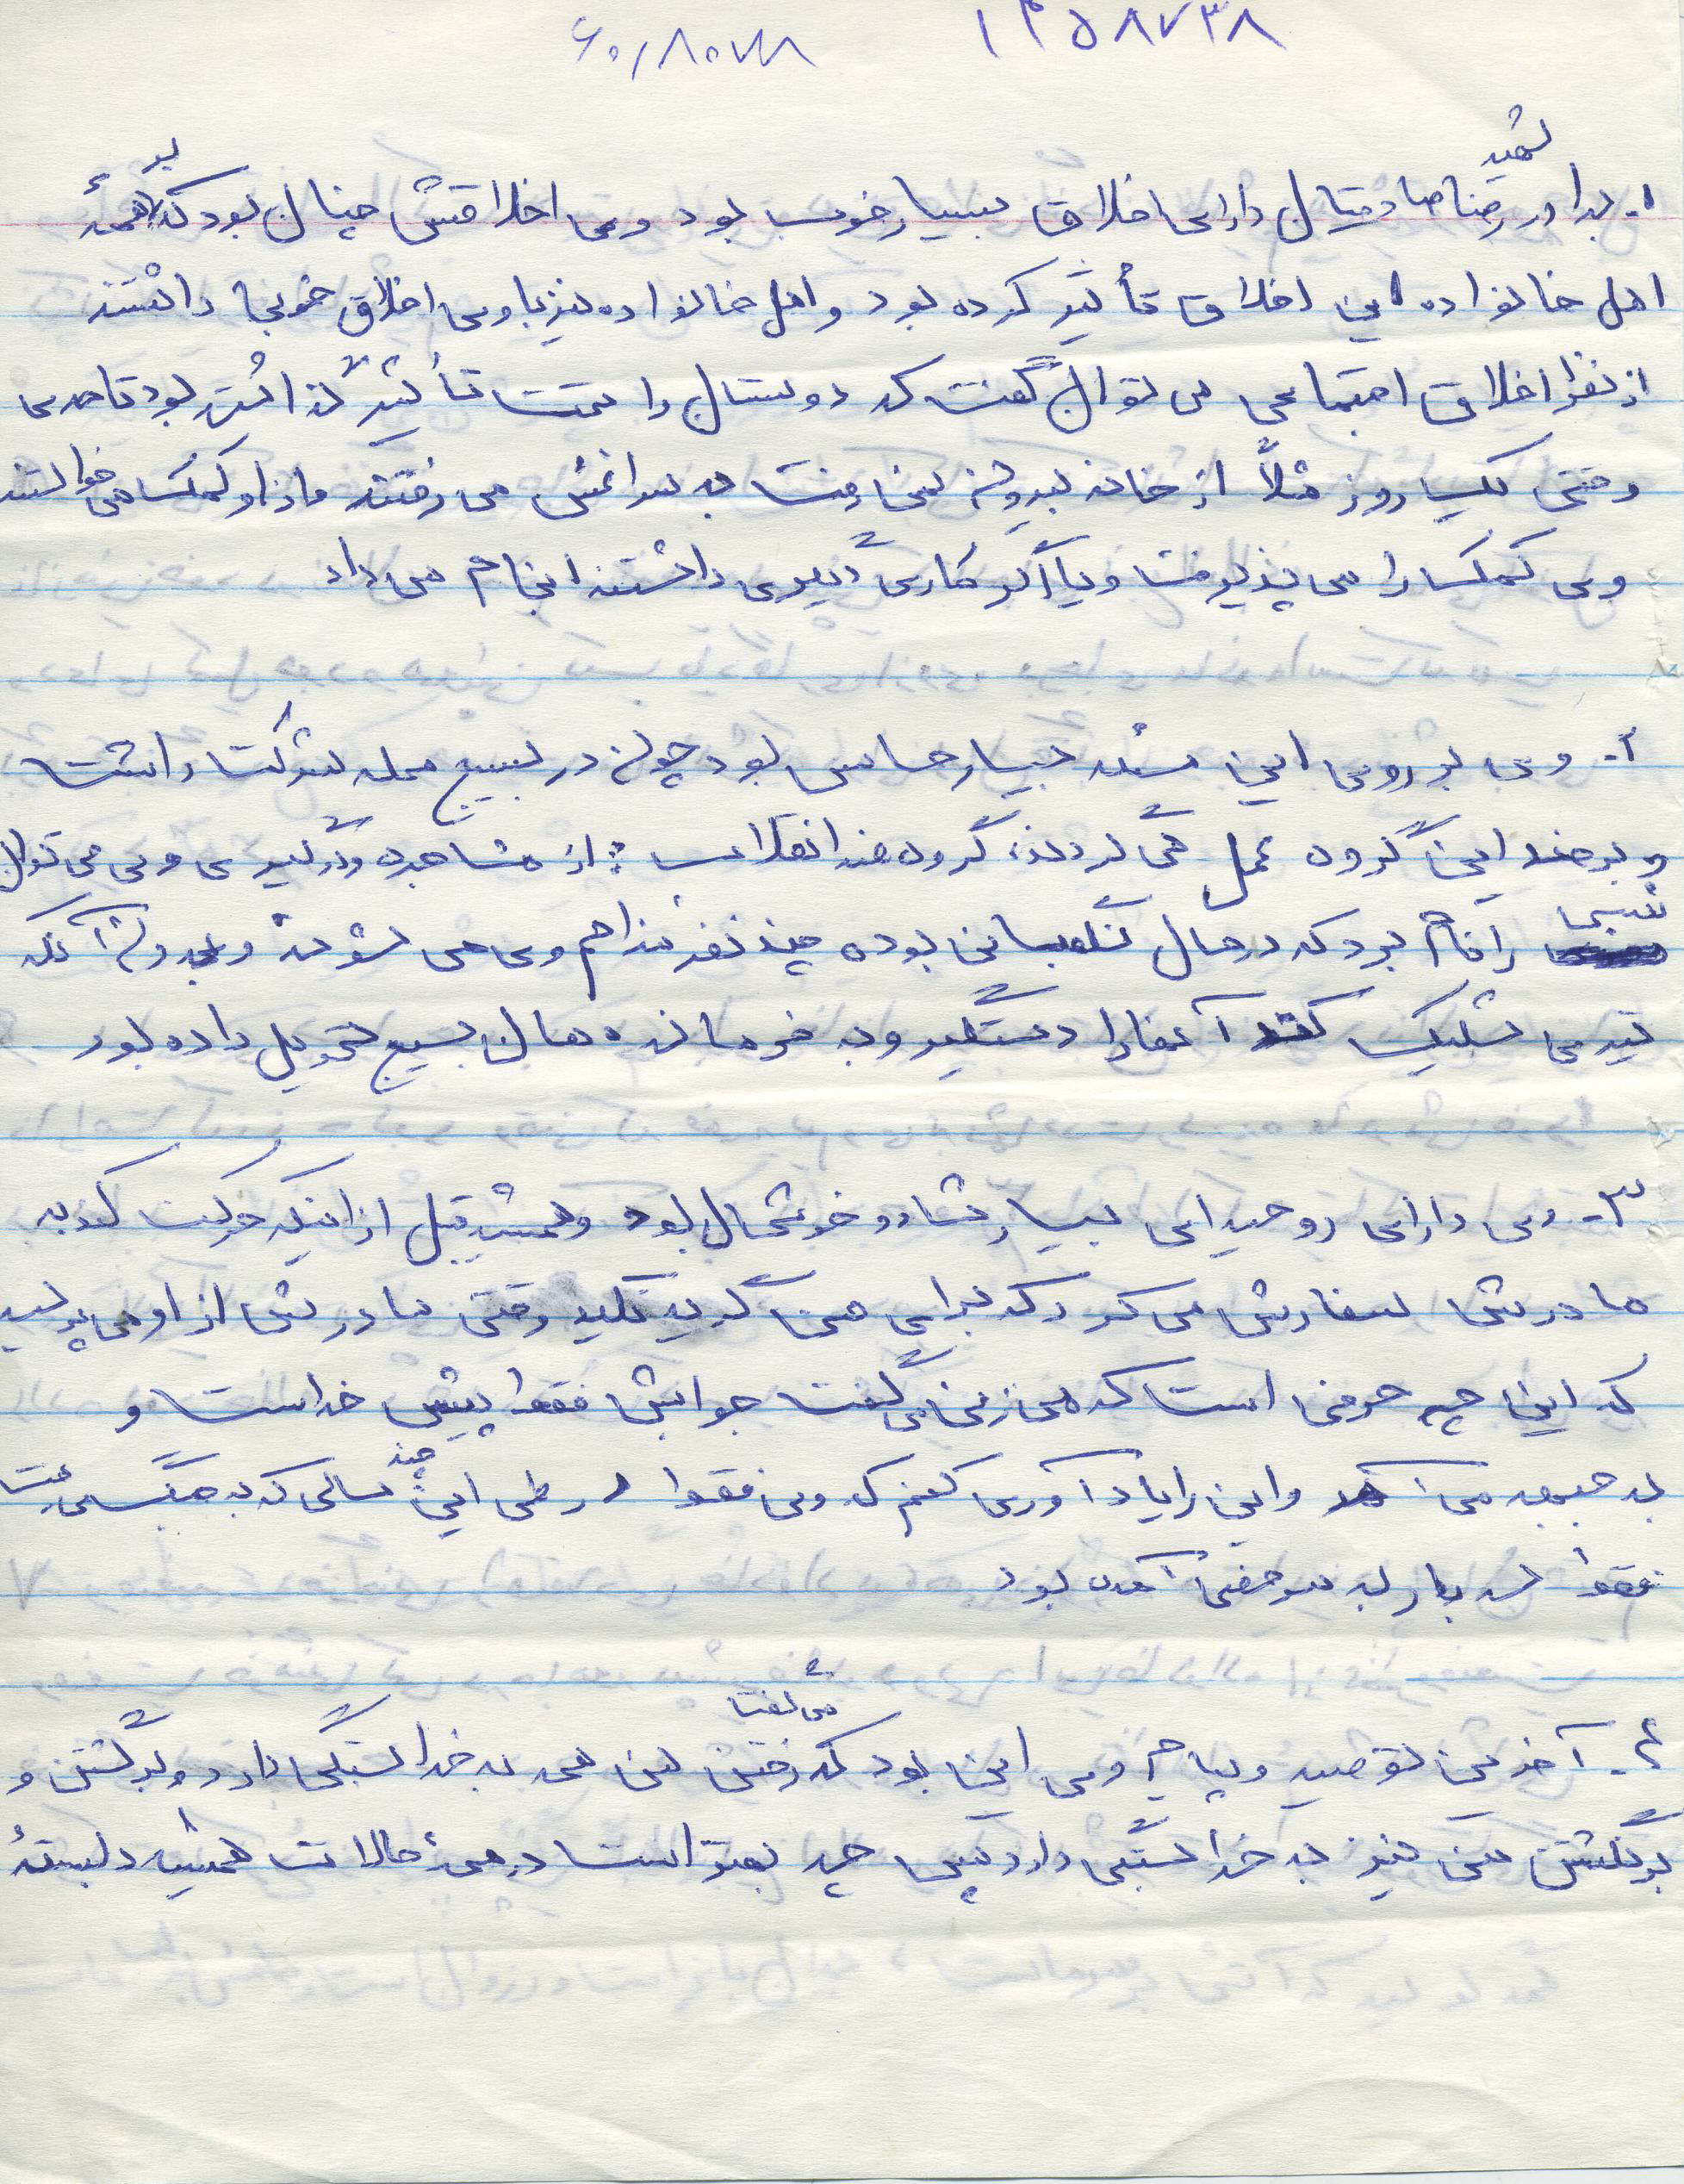 ۱۳۵۸۷۳۸
۱- برادر شهید رضا صادقیان دارای اخلاق بسیار خوب بود وی اخلاقش چنان بود که بر همهٔ
اهل خانواده این اخلاق تأثیر کرده بود و اهل خانواده نیز با وی اخلاق خوبی داشتند
از نظر اخلاق اجتماعی می توان گفت که دوستان را تحت تأثیر گذاشته بود تا حدی
وقتی یک روز مثلاً از خانه بیرون نمی رفت به سراغش می رفتند و از او کمک می خواستند
وی کمک را می پذیرفت و یا اگر کاری دیگری داشتند انجام می داد
۲- وی بر روی این مسئله بسیار حساس بود چون در بسیج محله شرکت داشت
و بر ضد این گروه عمل می کردند، گروه ضد انقلاب : از مشاهده و درگیری وی می توان
شبی را نام برد که در حال نگهبانی بوده چند نفر مزاحم وی می شوند و بدون آنکه
تیری شلیک کند آنها را دستگیر و به فرماندهان بسیج تحویل داده بود
۳- وی دارای روحیه ای بسیار شاد و خوشحال بود و همیشه قبل از اینکه حرکت کند به
مادرش سفارش می کرد که برای من گریه نکنید وقتی مادرش از او می پرسید
که این چه حرفی است که می زنی می گفت جوابش فقط پیش خداست و
به جبهه می آمد و این را یادآوری کنم که وی فقط در طی این چند سالی که به جنگ می رفت
فقط سه بار به مرخصی آمده بود
۴- آخرین توصیه و پیام وی این بود که می گفت رفتن من هم به خدا بستگی دارد و برگشتن و
برگشتن من نیز به خدا بستگی دارد پس چه بهتر است در همهٔ حالات همیشه وابستهٔ